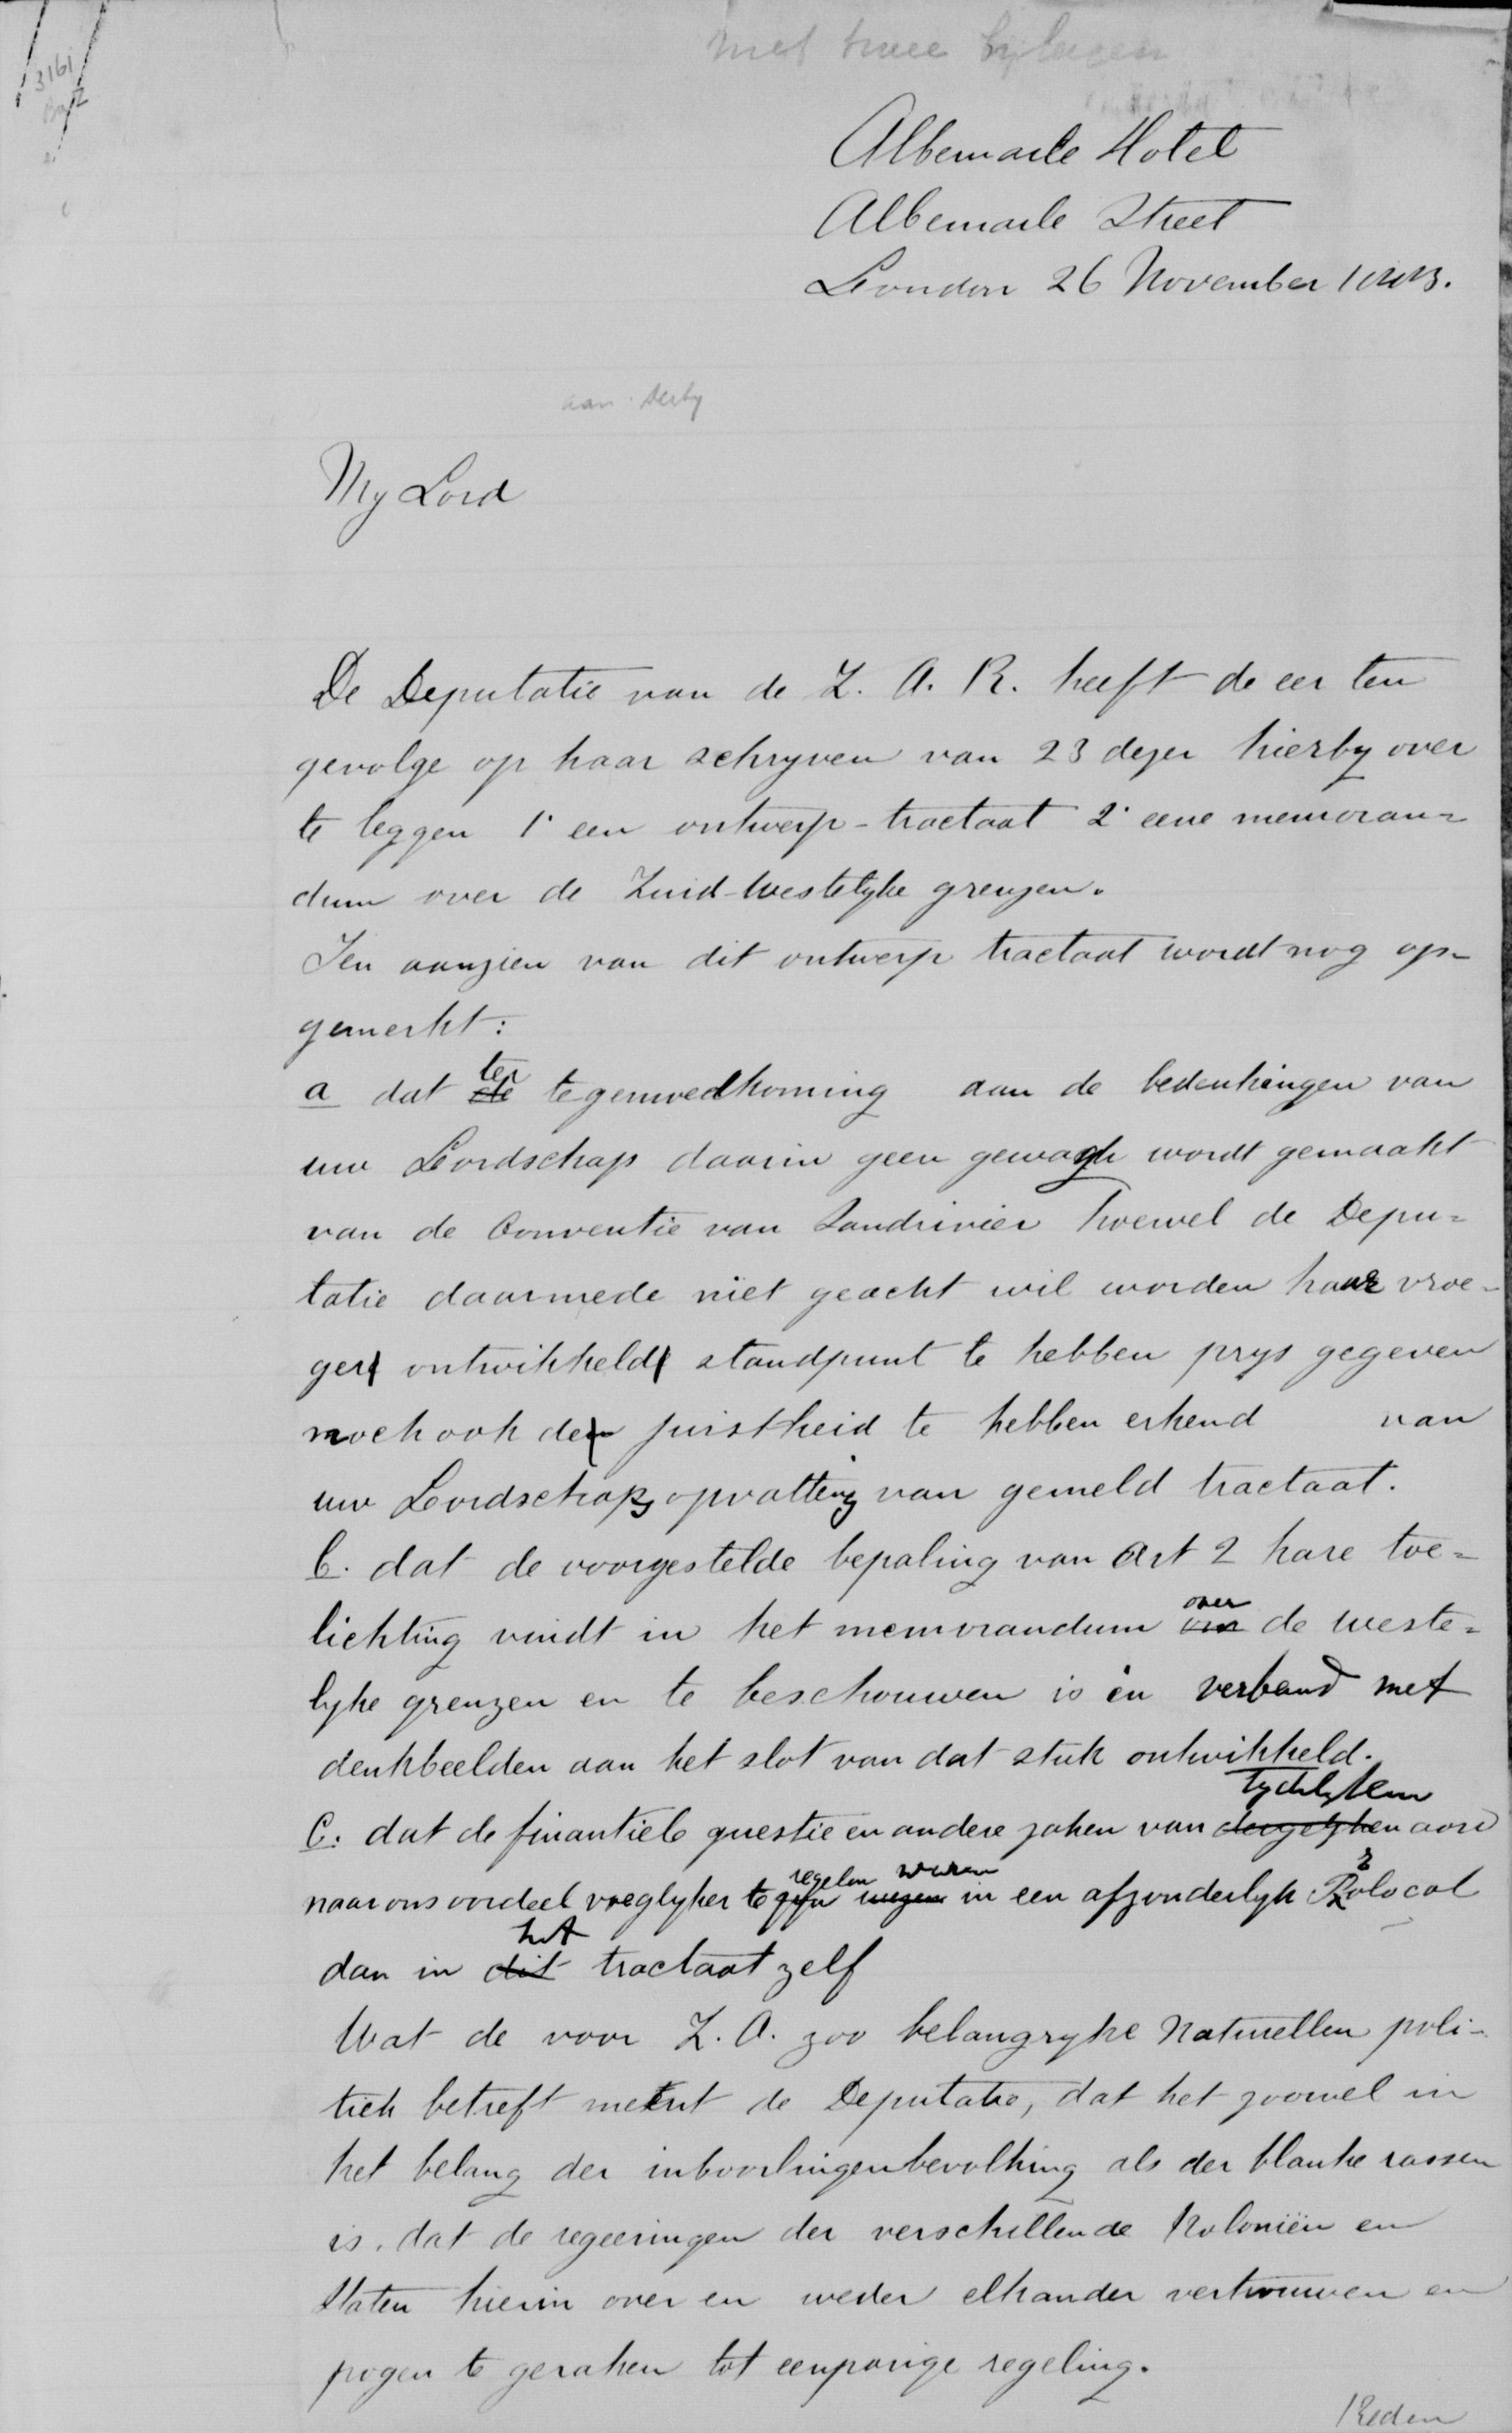 met twee bylagen
3161
Albemarle Hotel
Albemarle Street
London 26 November 1883.
aan Derby
My Lord
De Deputatie van de Z. A. R. heeft de eer ten
gevolge op haar schryven van 23 dezer hierby over
te leggen 1° een ontwerp-tractaat 2° eene memoran=
dum over de Zuid-Westelyke grenzen.
Ten aanzien van dit ontwerp tractaat wordt nog op-
gemerkt:
a dat ter tegemoedkoming aan de bedenkingen van
uw Lordschap daarin geen gewagh wordt gemaakt
van de Conventie van Zandrivier hoewel de Depu=
tatie daarmede niet geacht wil worden haar vroe-
ger ontwikkeld standpunt te hebben prys gegeven
noch ook de juistheid te hebben erkend van
uw Lordschaps opvatting van gemeld tractaat.
b. dat de voorgestelde bepaling van Art 2 hare toe=
lichting vindt in het memorandum over de weste=
lyke grenzen en te beschouwen is in verband met
denkbeelden aan het slot van dat stuk ontwikkeld.
C. dat de finantiele questie en andere zaken van tydelyken aard
naar ons oordeel voeglyker te regelen waren in een afzonderlyk Protocol
dan in het tractaat zelf
Wat de voor Z. A. zoo belangryke Naturellen poli-
tiek betreft meent de Deputatie, dat het zoowel in
het belang der inboorlingenbevolking als der blanke rassen
is, dat de regeeringen der verschillende Koloniën en
Staten hierin over en weder elkander vertrouwen en
pogen te geraken tot eenparige regeling.
Reden